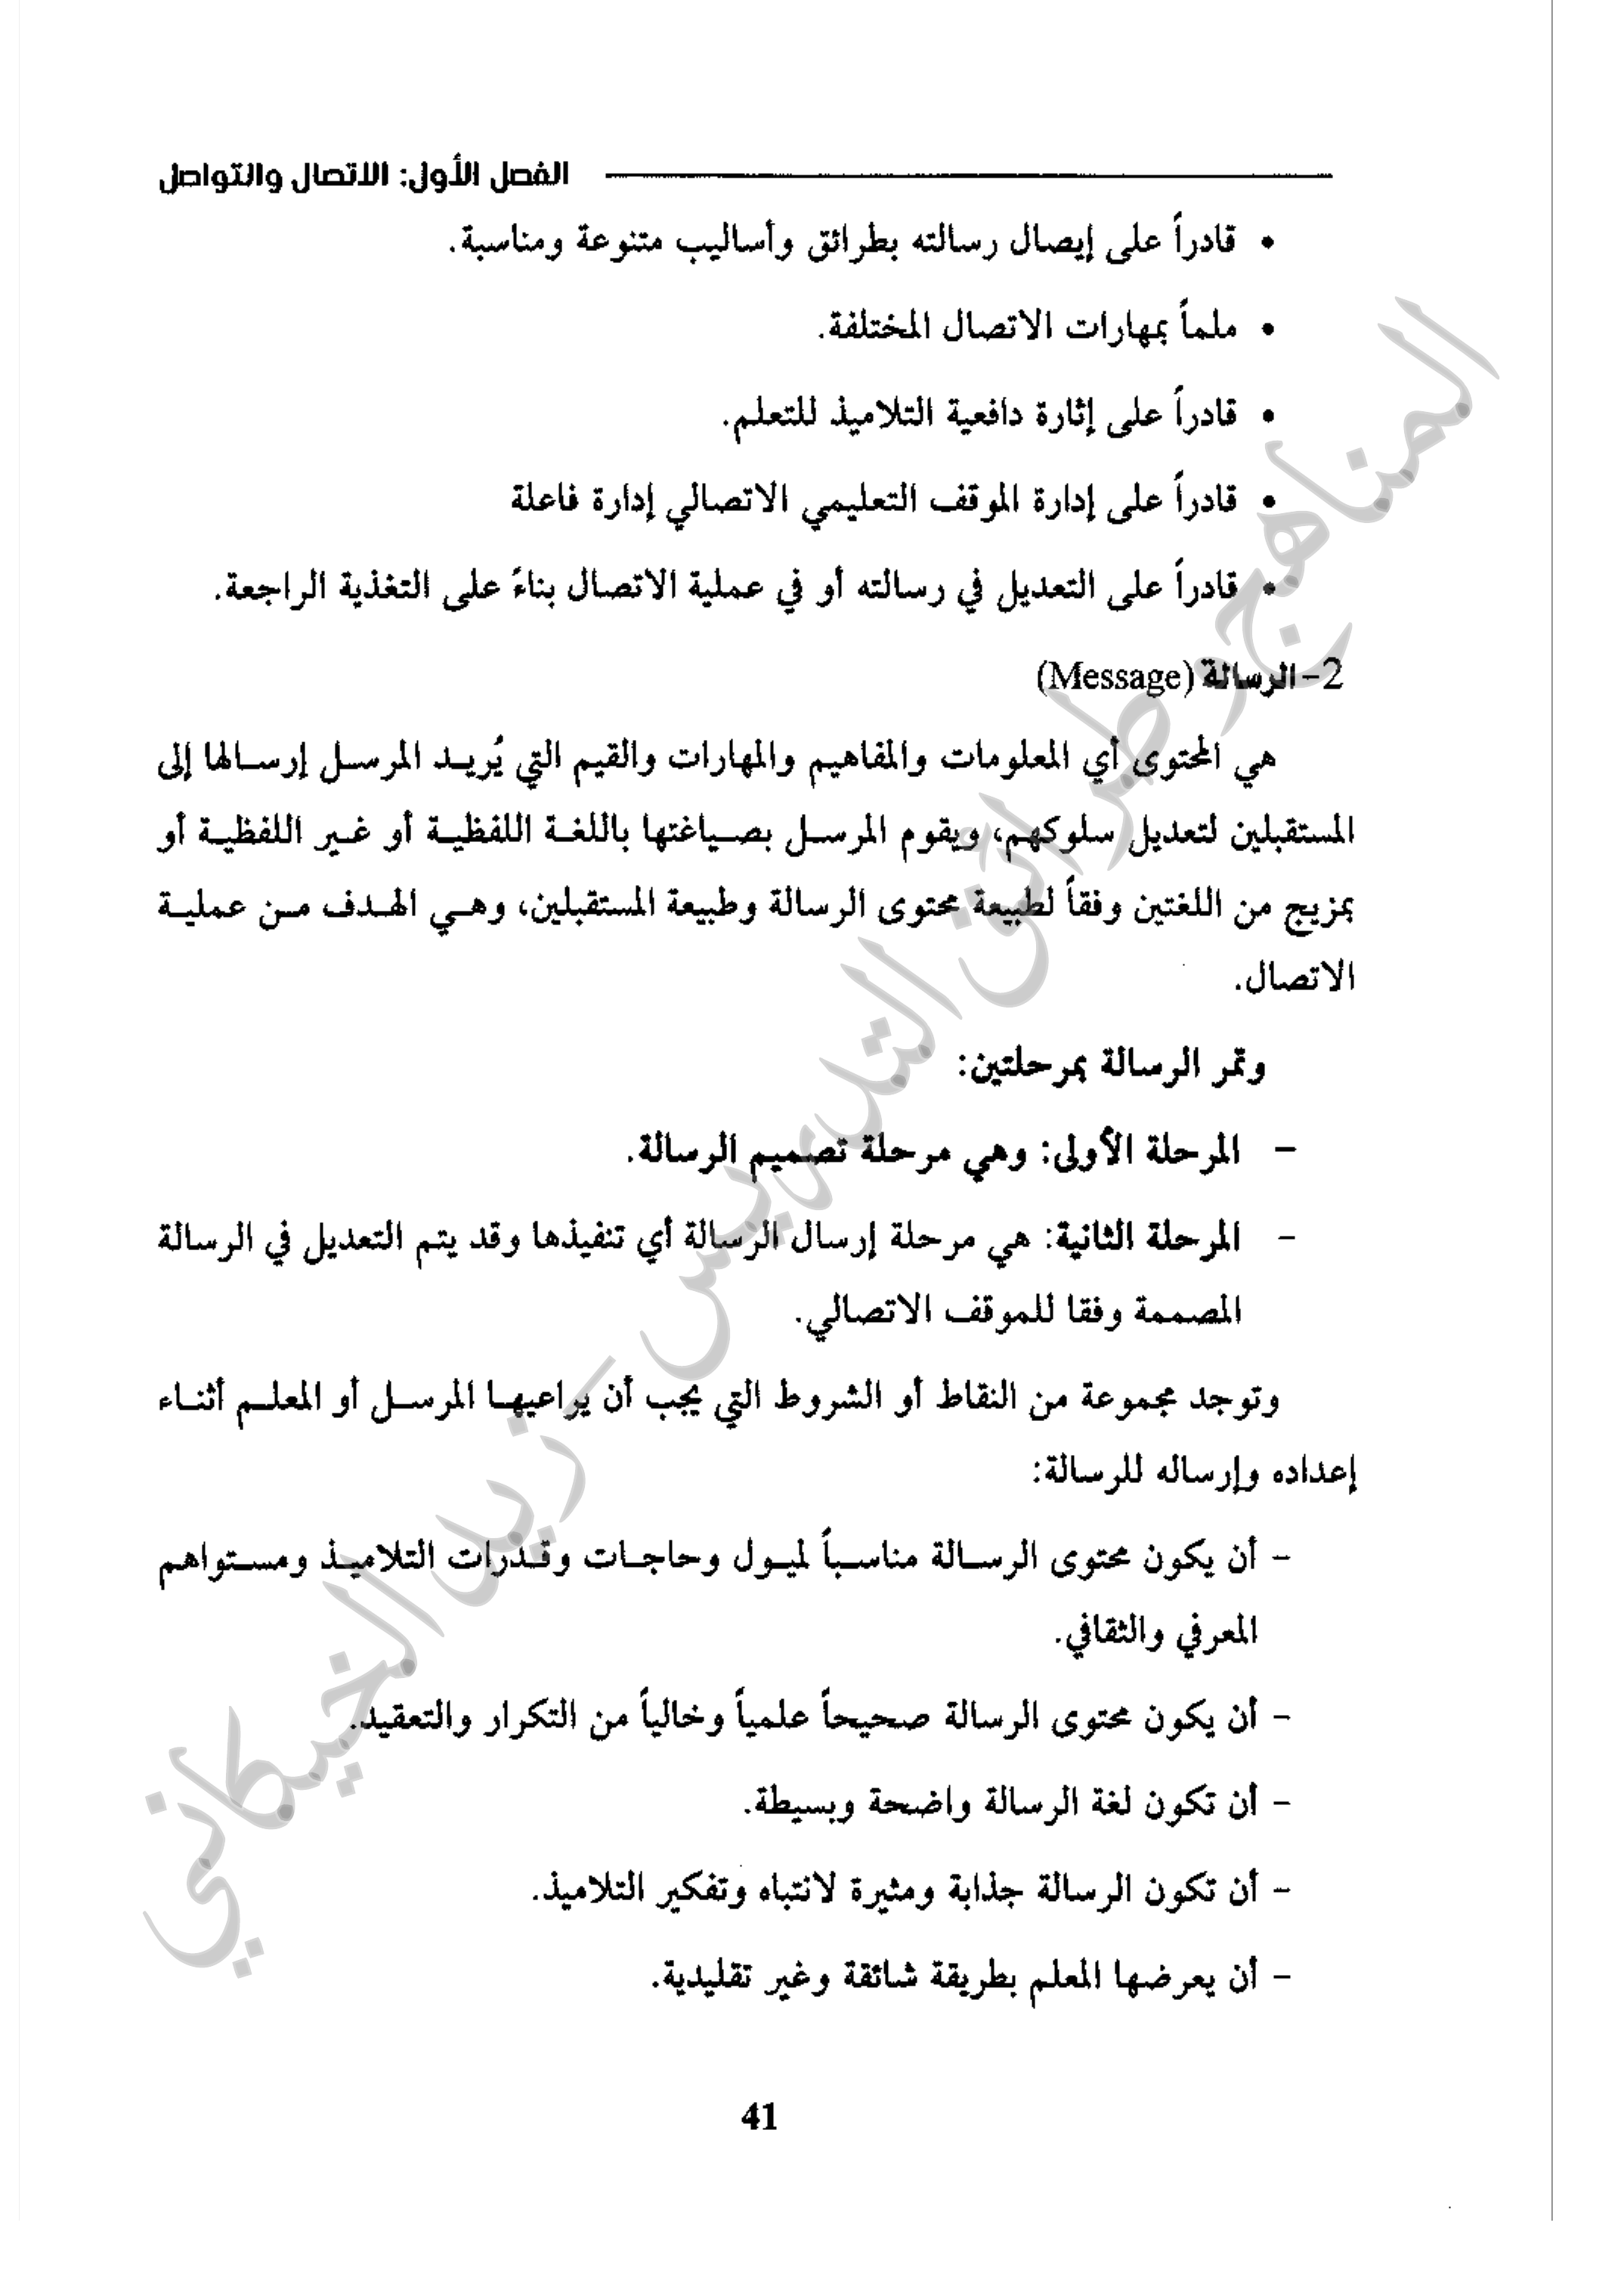 الفصل الأول: الاتصال والتواصل
• قادراً على إيصال رسالته بطرائق وأساليب متنوعة ومناسبة.
• ملماً بمهارات الاتصال المختلفة.
• قادراً على إثارة دافعية التلاميذ للتعلم.
• قادراً على إدارة الموقف التعليمي الاتصالي إدارة فاعلة
• قادراً على التعديل في رسالته أو في عملية الاتصال بناءً على التغذية الراجعة.
2- الرسالة (Message)
هي المحتوى أي المعلومات والمفاهيم والمهارات والقيم التي يُريد المرسل إرسالها إلى
المستقبلين لتعديل سلوكهم، ويقوم المرسل بصياغتها باللغة اللفظية أو غير اللفظية أو
بمزيج من اللغتين وفقاً لطبيعة محتوى الرسالة وطبيعة المستقبلين، وهي الهدف من عملية
الاتصال.
وتمر الرسالة بمرحلتين:
- المرحلة الأولى: وهي مرحلة تصميم الرسالة.
- المرحلة الثانية: هي مرحلة إرسال الرسالة أي تنفيذها وقد يتم التعديل في الرسالة
المصممة وفقا للموقف الاتصالي.
وتوجد مجموعة من النقاط أو الشروط التي يجب أن يراعيها المرسل أو المعلم أثناء
إعداده وإرساله للرسالة:
- أن يكون محتوى الرسالة مناسباً لميول وحاجات وقدرات التلاميذ ومستواهم
المعرفي والثقافي.
- أن يكون محتوى الرسالة صحيحاً علمياً وخالياً من التكرار والتعقيد.
- أن تكون لغة الرسالة واضحة وبسيطة.
- أن تكون الرسالة جذابة ومثيرة لانتباه وتفكير التلاميذ.
- أن يعرضها المعلم بطريقة شائقة وغير تقليدية.
41
المناهج وطرائق التدريس - زيد الخيكاني